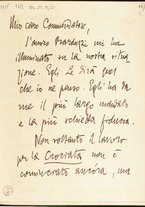 Mio caro Commendatore,
l'amico Brardinzi mi ha
illuminato su la nostra situa
zione. Egli Le dirà quel
che io ne penso. Egli ha da
me il più largo mandato
e la più schietta fiducia.
Non soltanto il lavoro
per la Crociata non è
cominciato ancora, ma